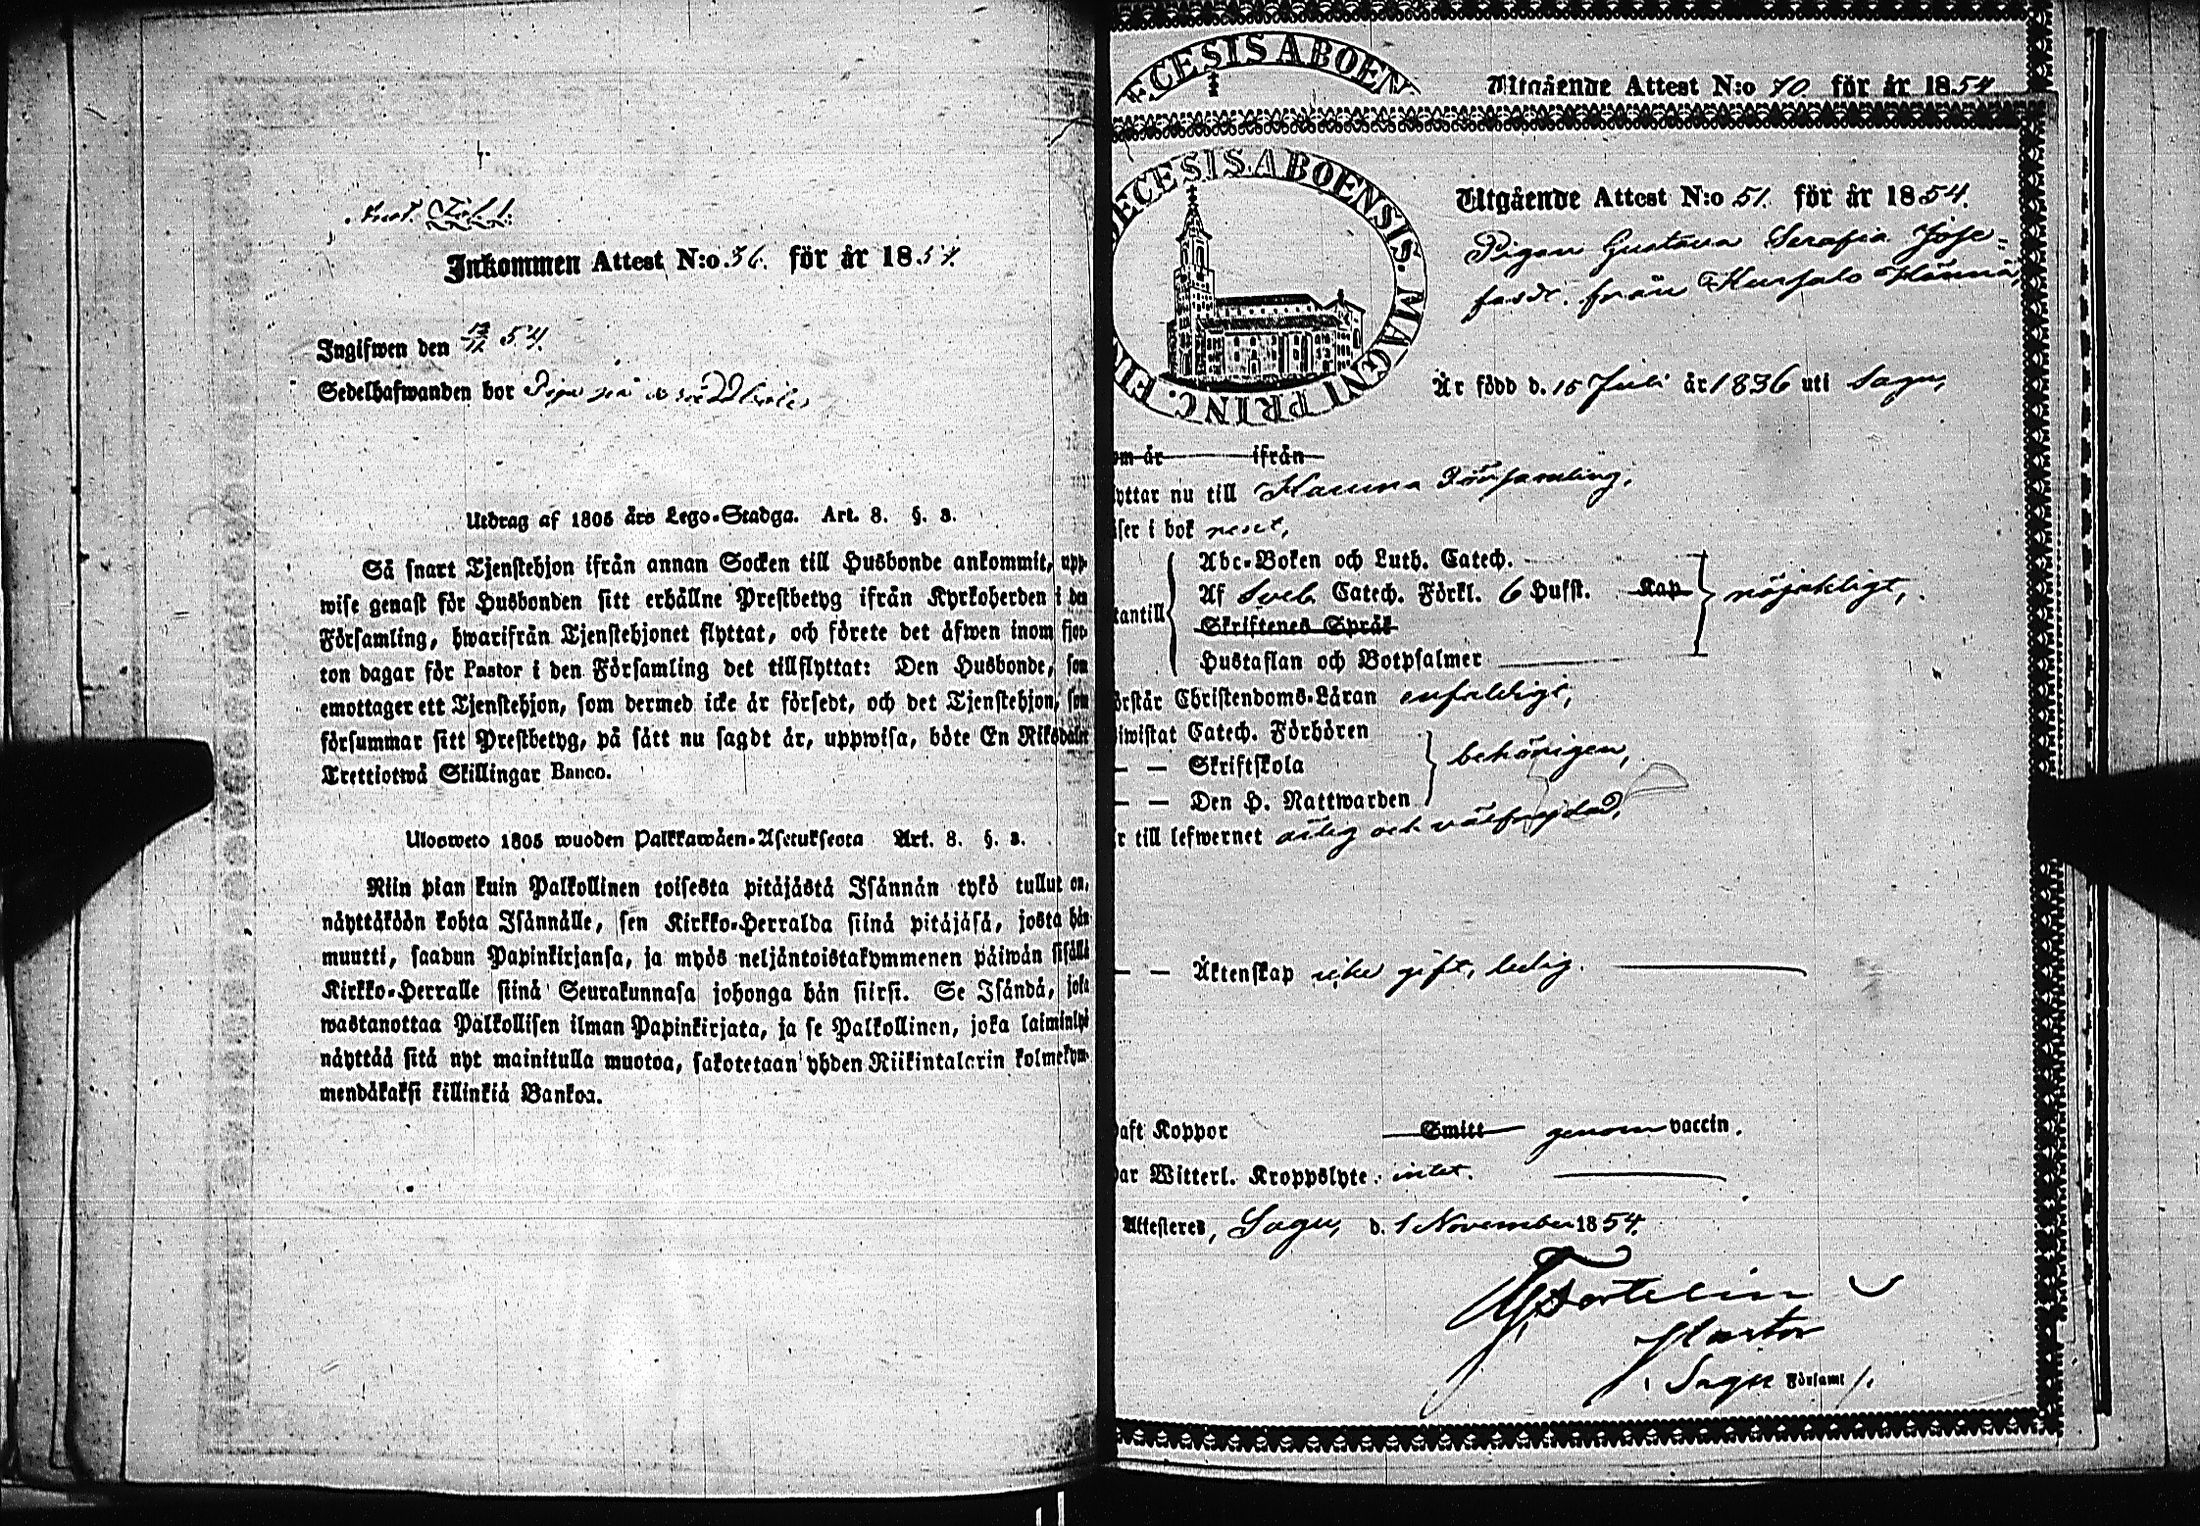 Inkommen Attest N:o 36. för år 1854.
Ingifwen den 12/12 54.
Sedelhafwanden bor Piga
Utdrag af 1805 års Lego-Stadga. Art. 8. §. 3.
Så snart Tjenstehjon ifrån annan Socken till Husbonde ankommit, upp-
wise genast för Husbonden sitt erhållne Prestbetyg ifrån Kyrkoherden i den
Församling, hwarifrån Tjenstehjonet flyttat, och förete det äfwen inom fjor-
ton dagar för Pastor i den Församling det tillflyttat: Den Husbonde, som
emottager ett Tjenstehjon, som dermed icke är försedt, och det Tjenstehjon, som
försummar sitt Prestbetyg, på sätt nu sagdt är, uppwisa, böte En Riksdaler
Trettiotwå Skillingar Banco.
Ulosweto 1805 wuoden Palkkawäen-Asetuksesta Art. 8. §. 3.
Niin pian kuin Palkollinen toisesta pitäjästä Isännän tykö tullut on,
näyttäköön kohta Isännälle, sen Kirkko-Herralda siinä pitäjäsä, josta hän
muutti, saadun Papinkirjansa, ja myös neljäntoistakymmenen päiwän sisällä
Kirkko-Herralle siinä Seurakunnasa johonga hän siirsi. Se Isändä, joka
wastanottaa Palkollisen ilman Papinkirjata, ja se Palkollinen, joka laiminlyö
näyttää sitä nyt mainitulla muotoa, sakotetaan yhden Riikintalarin kolmekym-
mendäkaksi killinkiä Bankoa.
ECESIS ABOEN
Utgående Attest N:o 70 för år 1854
DECESIS ABOENSIS. MAGNI PRINC. FIN
Utgående Attest N:o 51. för år 1854.
Pigan Gustava Serafia Jose-
fsdr. från
Är född d. 15 Juli år 1836 uti Sagu,
om är ifrån
yttar nu till Karuna Församling,
äser i bok rent,
Abc-Boken och Luth. Catech.
tantill Af Sveb. Catech. Förkl. 6 Hufst. Kap nöjaktigt,
Skriftenes Språk
Hustaflan och Botpsalmer
örstår Christendoms-Läran enfaldigt,
iwistat Catech. Förhören
— — Skriftskola behörigen,
— — Den H. Nattwarden
r till lefwernet ärlig och välfrejdad,
— — Äktenskap icke gift, ledig.
aft Koppor Smitt genom vaccin.
ar Witterl. Kroppslyte intet.
Attesteres, Sagu, d. 1 November 1854.
Pastor
i Sagu Församl.